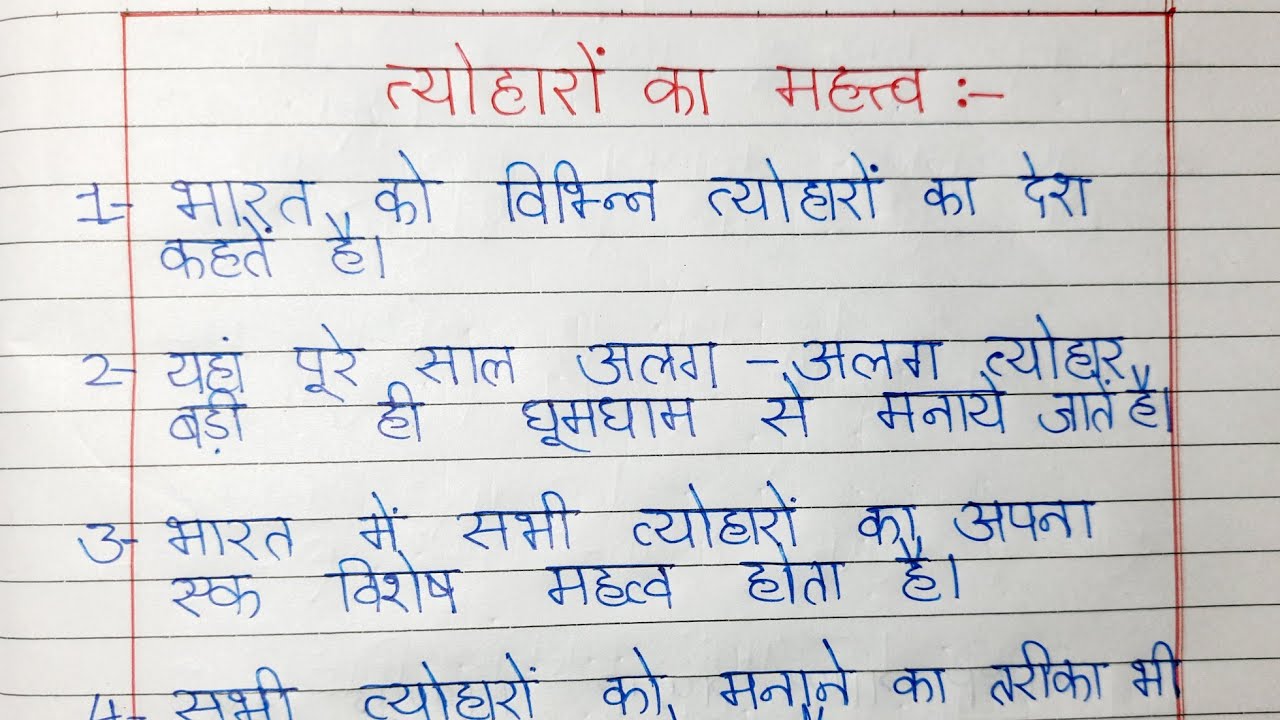 त्योहारों का महत्त्व :-
1- भारत को विभिन्न त्योहारों का देश
कहते है।
2- यहां पूरे साल अलग - अलग त्योहार
बड़ी ही धूमधाम से मनाये जाते है।
3- भारत में सभी त्योहारों का अपना
एक विशेष महत्व होता है।
4- सभी त्योहारों को मनाने का तरीका भी